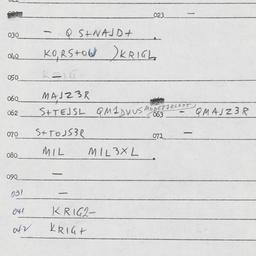 023 —
030 — Q S+NAJD+
040 KO,RS+OW )KRIGL
050
060 MAJZ3R
062 S+TEJSL QM1DVUS 063 — QMAJZ3R
070 S+TOJS3R 072 —
080 MIL MIL3XL
090 —
031 —
041 KRIG2—
042 KRIG+